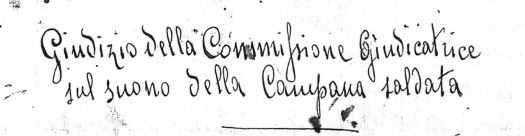 Giudizio della Commissione Giudicatrice
sul suono della Campana saldata